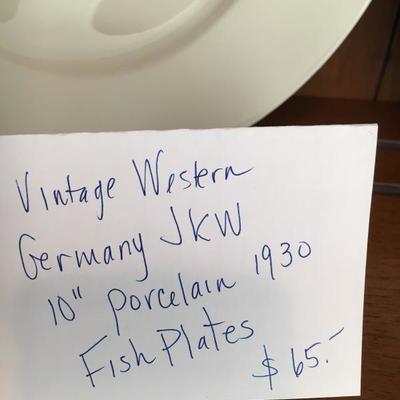 Vintage Western
Germany JKW
10" porcelain 1930
Fish Plates
$65.-